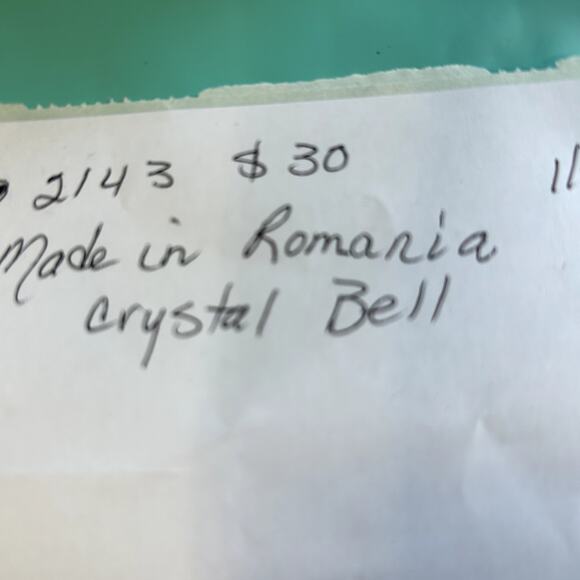 2143 $30 11
Made in Romania
crystal Bell